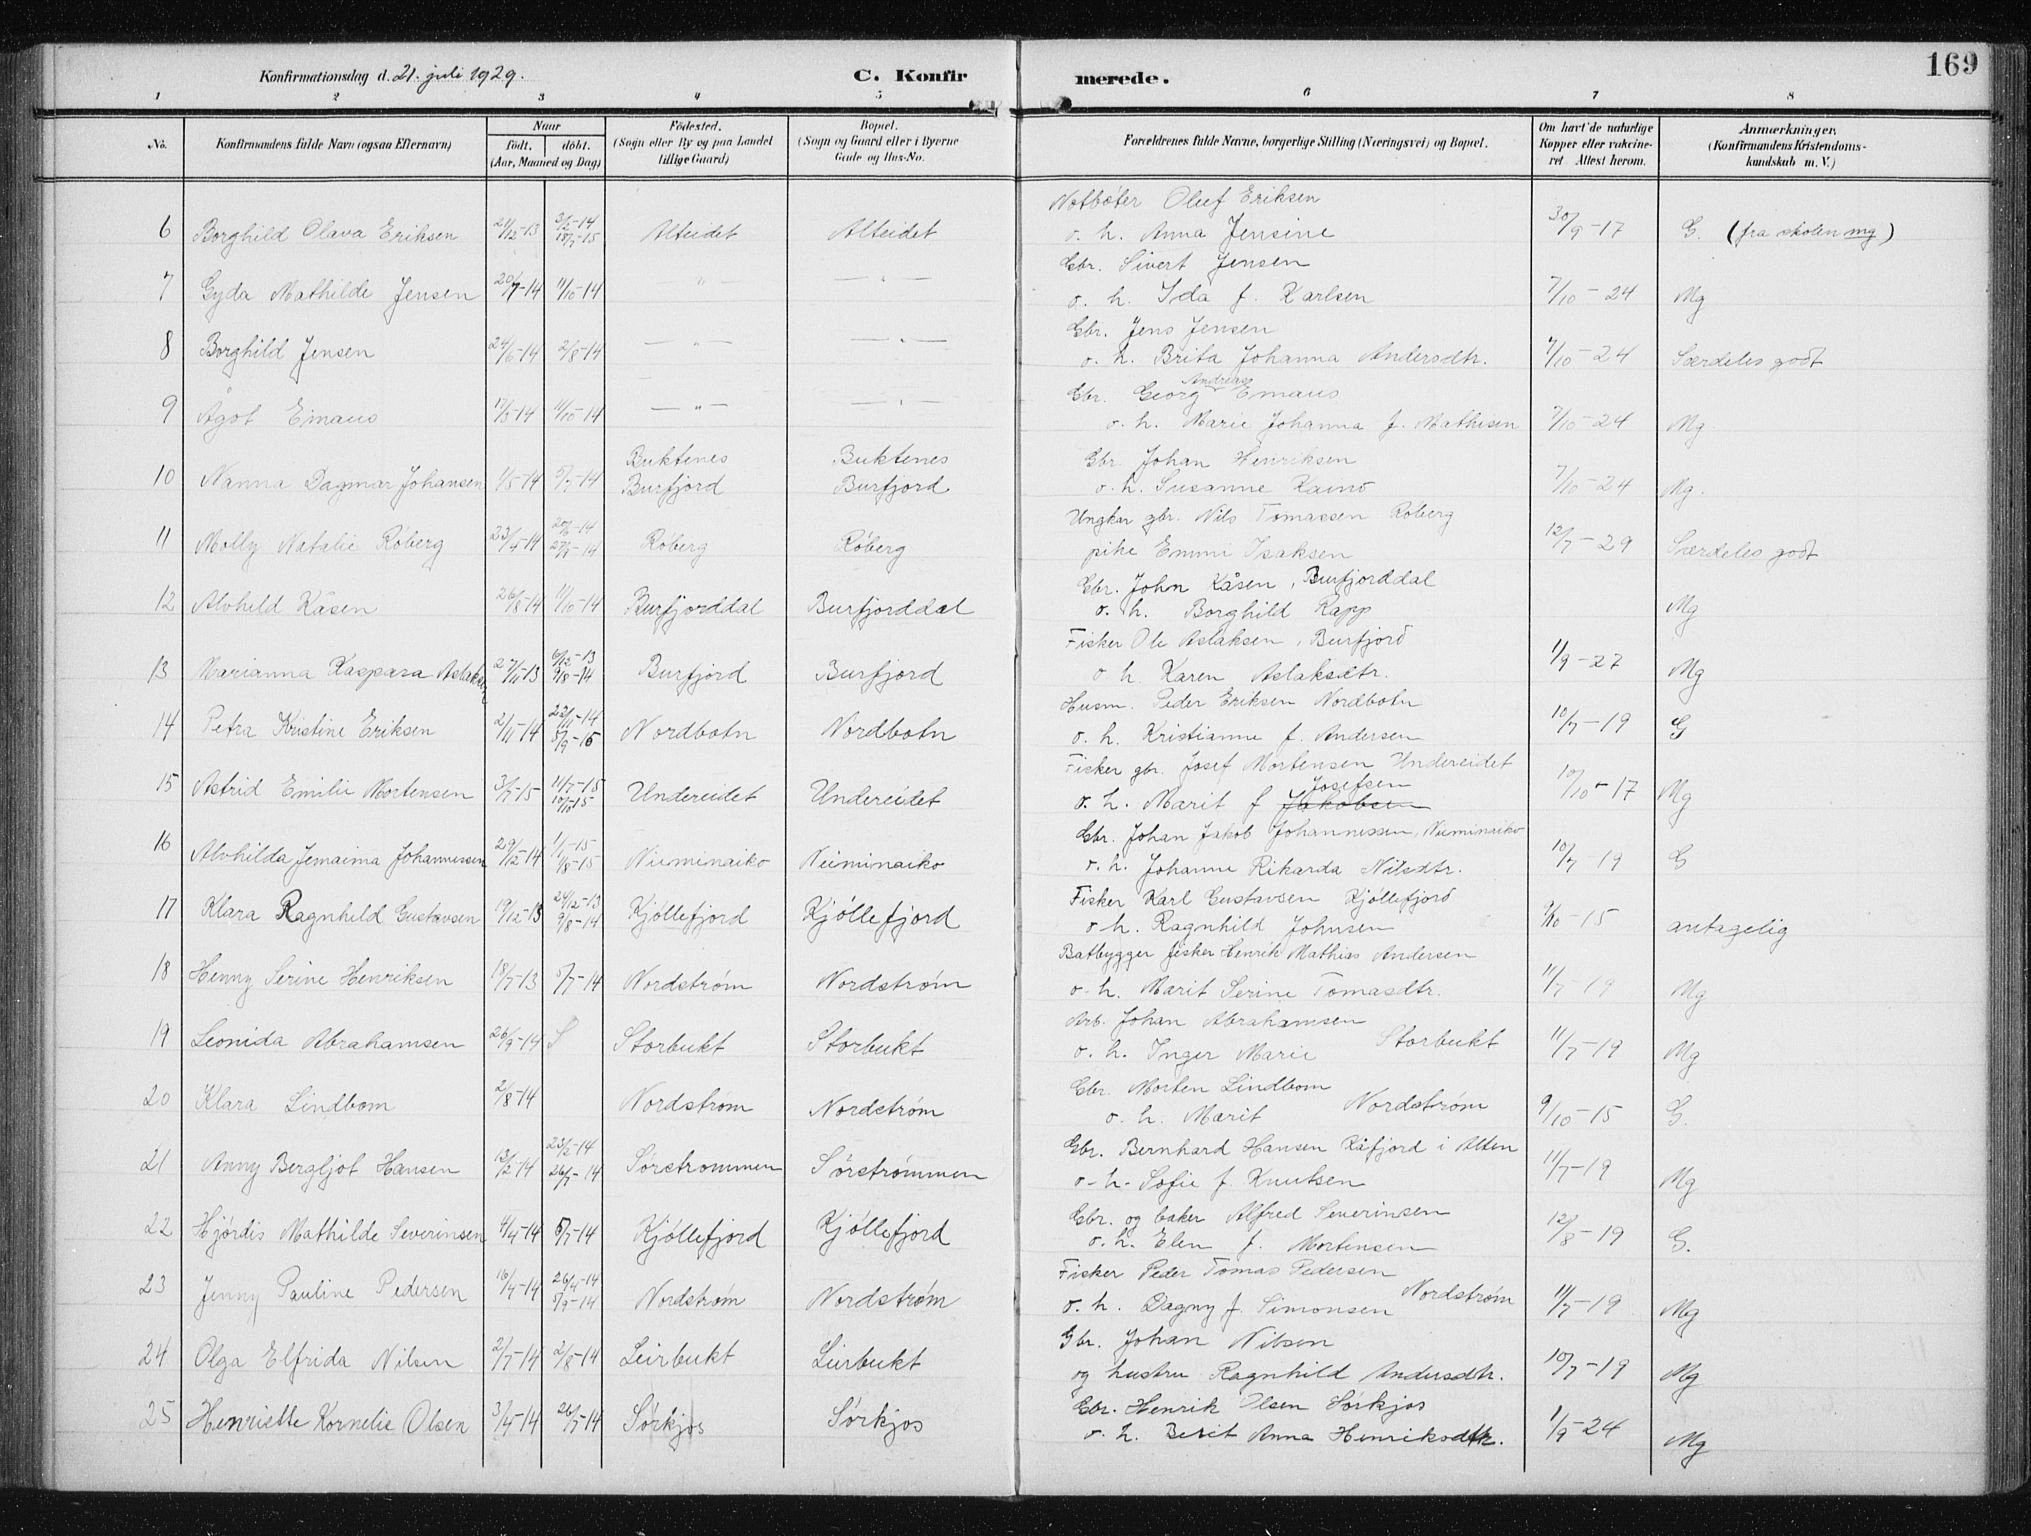 169
Konfirmationsdag d. 21. juli 1929.
C. Konfirmerede.
1 2 3 4 5 6 7 8
No. Konfirmandens fulde Navn (ogsaa Efternavn) Naar født. døbt. (Aar, Maaned og Dag) Fødested. (Sogn eller By og paa Landet tillige Gaard) Bopæl. (Sogn og Gaard eller i Byerne Gade og Hus-No. Forældrenes fulde Navne, borgerlige Stilling (Næringsvei) og Bopæl. Om havt de naturlige Kopper eller vakcineret Attest herom. Anmærkninger. (Konfirmandens Kristendomskundskab m. V.)
Notbøter Oluf Eriksen
6 Borghild Olava Eriksen 21/12-13 3/2-14 18/7-15 Alteidet Alteidet o. h. Anna Jensine 30/9-17 G. (fra skolen mg)
Gbr. Sivert Jensen
7 Gyda Mathilde Jensen 20/7-14 11/10-14 — " — — " — o. h. Ida f. Karlsen 7/10-24 Mg
Gbr. Jens Jensen
8 Borghild Jensen 24/6-14 2/8-14 — " — — " — o. h. Brita Johanna Andersdtr. 7/10-24 Særdeles godt
Gbr. Georg Andreas Emaus
9 Ågot Emaus 17/5-14 11/10-14 — " — — " — o. h. Marie Johanna f. Mathisen 7/10-24 Mg
Buktenes Buktenes Gbr Johan Henriksen
10 Nanna Dagmar Johansen 1/5-14 5/7-14 Burfjord Burfjord o. h. Susanne Kaino 7/10-24 Mg.
Ungkar gbr. Nils Tomassen Røberg
11 Molly Natalie Røberg 23/5-14 27/9-14 Røberg Røberg pike Emmi Isaksen 12/7-29 Særdeles godt
Gbr. John Kåsen, Burfjorddal
12 Alvhild Kåsen 26/8-14 11/10-14 Burfjorddal Burfjorddal o. h. Borghild Rapp Mg
Fisker Ole Aslaksen, Burfjord
13 Marianna Kaspara Aslaksen 27/11-13 6/12-13 9/8-14 Burfjord Burfjord o. h. Karen Aslaksdtr. 1/9-27 Mg
Husm. Peder Eriksen Nordbotn
14 Petra Kristine Eriksen 2/11-14 22/11-14 5/9-15 Nordbotn Nordbotn o. h. Kristianne f. Andersen 10/7-19 G
Fisker gbr. Josef Mortensen Undereidet
15 Astrid Emilie Mortensen 3/7-15 11/7-15 10/10-15 Undereidet Undereidet o. h. Marit f Jakobsen Josefsen 10/10-17 Mg
Gbr. Johan Jakob Johannessen, Nieminaiko
16 Alvhilda Jemaima Johannessen 29/12-14 1/1-15 1/8-15 Nieminaiko Nieminaiko o. h. Johanne Rikarda Nilsdtr. 10/7-19 G
Fisker Karl Gustavsen Kjøllefjord
17 Klara Ragnhild Gustavsen 19/12-13 24/12-13 9/8-14 Kjøllefjord Kjøllefjord o. h. Ragnhild Johnsen 9/10-15 antagelig
Båtbygger fisker Henrik Mathias Andersen
18 Henny Serine Henriksen 18/7-13 5/7-14 Nordstrøm Nordstrøm o. h. Marit Serine Tomasdtr. 11/7-19 Mg
Arb. Johan Abrahamsen
19 Leonida Abrahamsen 26/9-14 Storbukt Storbukt o. h. Inger Marie Storbukt 11/7-19 Mg
Gbr. Morten Lindbom
20 Klara Lindbom 2/8-14 Nordstrøm Nordstrøm o. h. Marit Nordstrøm 9/10-15 G.
Gbr. Bernhard Hansen Kåfjord i Alten
21 Anny Bergljot Hansen 12/2-14 23/2-14 26/7-14 Sørstrommen Sørstrømmen o. h. Sofie f. Knutsen 11/7-19 Mg
Gbr. og baker Alfred Severinsen
22 Hjørdis Mathilde Severinsen 4/4-14 5/7-14 Kjøllefjord Kjøllefjord o. h. Elen f. Mortensen 12/8-19 G.
Fisker Peder Tomas Pedersen
23 Jenny Pauline Pedersen 16/4-14 26/4-14 5/9-14 Nordstrøm Nordstrøm o. h. Dagny f. Simonsen Nordstrøm 11/7-19 Mg
Gbr. Johan Nilsen
24 Olga Elfrida Nilsen 2/7-14 2/8-14 Leirbukt Leirbukt og hustru Ragnhild Andersdtr. 10/7-19 Mg
Gbr. Henrik Olsen Sørkjos
25 Henriette Kornelie Olsen 3/4-14 26/7-14 Sørkjos Sørkjos o. h. Berit Anna Henriksdtr. 1/9-24 Mg